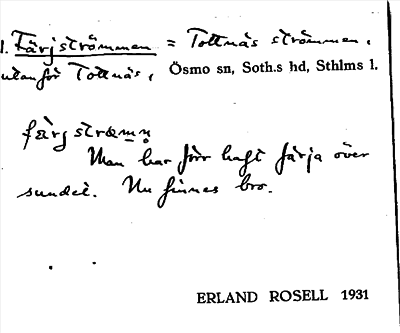 1. Färjströmmen = Tottnäs strömmen,
utanför Tottnäs, Ösmo sn, Soth.s hd, Sthlms l.
färjstræmn̥
Man har förr haft färja över
sundet. Nu finnes bro.
ERLAND ROSELL 1931